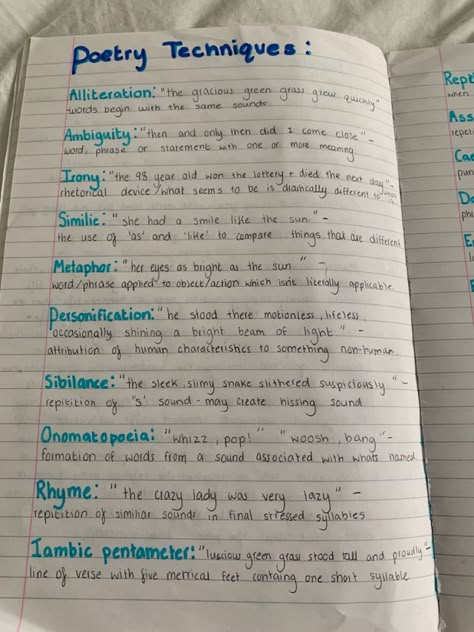 Poetry Techniques:
Alliteration: "the gracious green grass grew quickly"
words begin with the same sounds
Ambiguity: "then and only then did I come close" -
word, phrase or statement with one or more meaning
Irony: "the 98 year old won the lottery + died the next day" -
rhetorical device/what seems to be is diaihically different to
Similie: "she had a smile like the sun." -
the use of 'as' and 'like' to compare things that are different
Metaphor: "her eyes as bright as the sun" -
word/phrase applied to object/action which isnt literally applicable
Personification: "he stood there motionless, lifeless,
occasionally shining a bright beam of light" -
attribution of human characteristics to something non-human
Sibilance: "the sleek, slimy snake slithered suspiciously" -
repitition of 's' sound - may create hissing sound
Onomatopoeia: "whizz, pop!" "woosh, bang" -
formation of words from a sound associated with whats named
Rhyme: "the crazy lady was very lazy" -
repitition of similiar sounds in final stressed syllables
Iambic pentameter: "luscious green grass stood tall and proudly" -
line of verse with five metrical feet containg one short syllable
Rept
when
Ass
repet
Cae
pun
phr